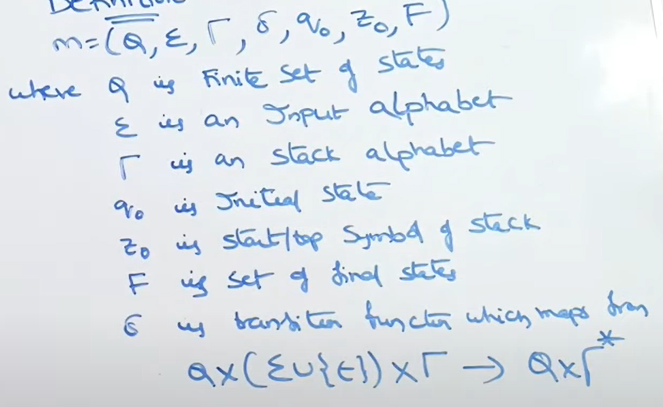 Definition
m=(Q, Σ, Γ, δ, q₀, Z₀, F)
where Q is Finite set of states
Σ is an Input alphabet
Γ is an stack alphabet
q₀ is Initial state
Z₀ is start/top Symbol of stack
F is set of final states
δ is transition function which maps from
Q×(Σ∪{ϵ})×Γ → Q×Γ*